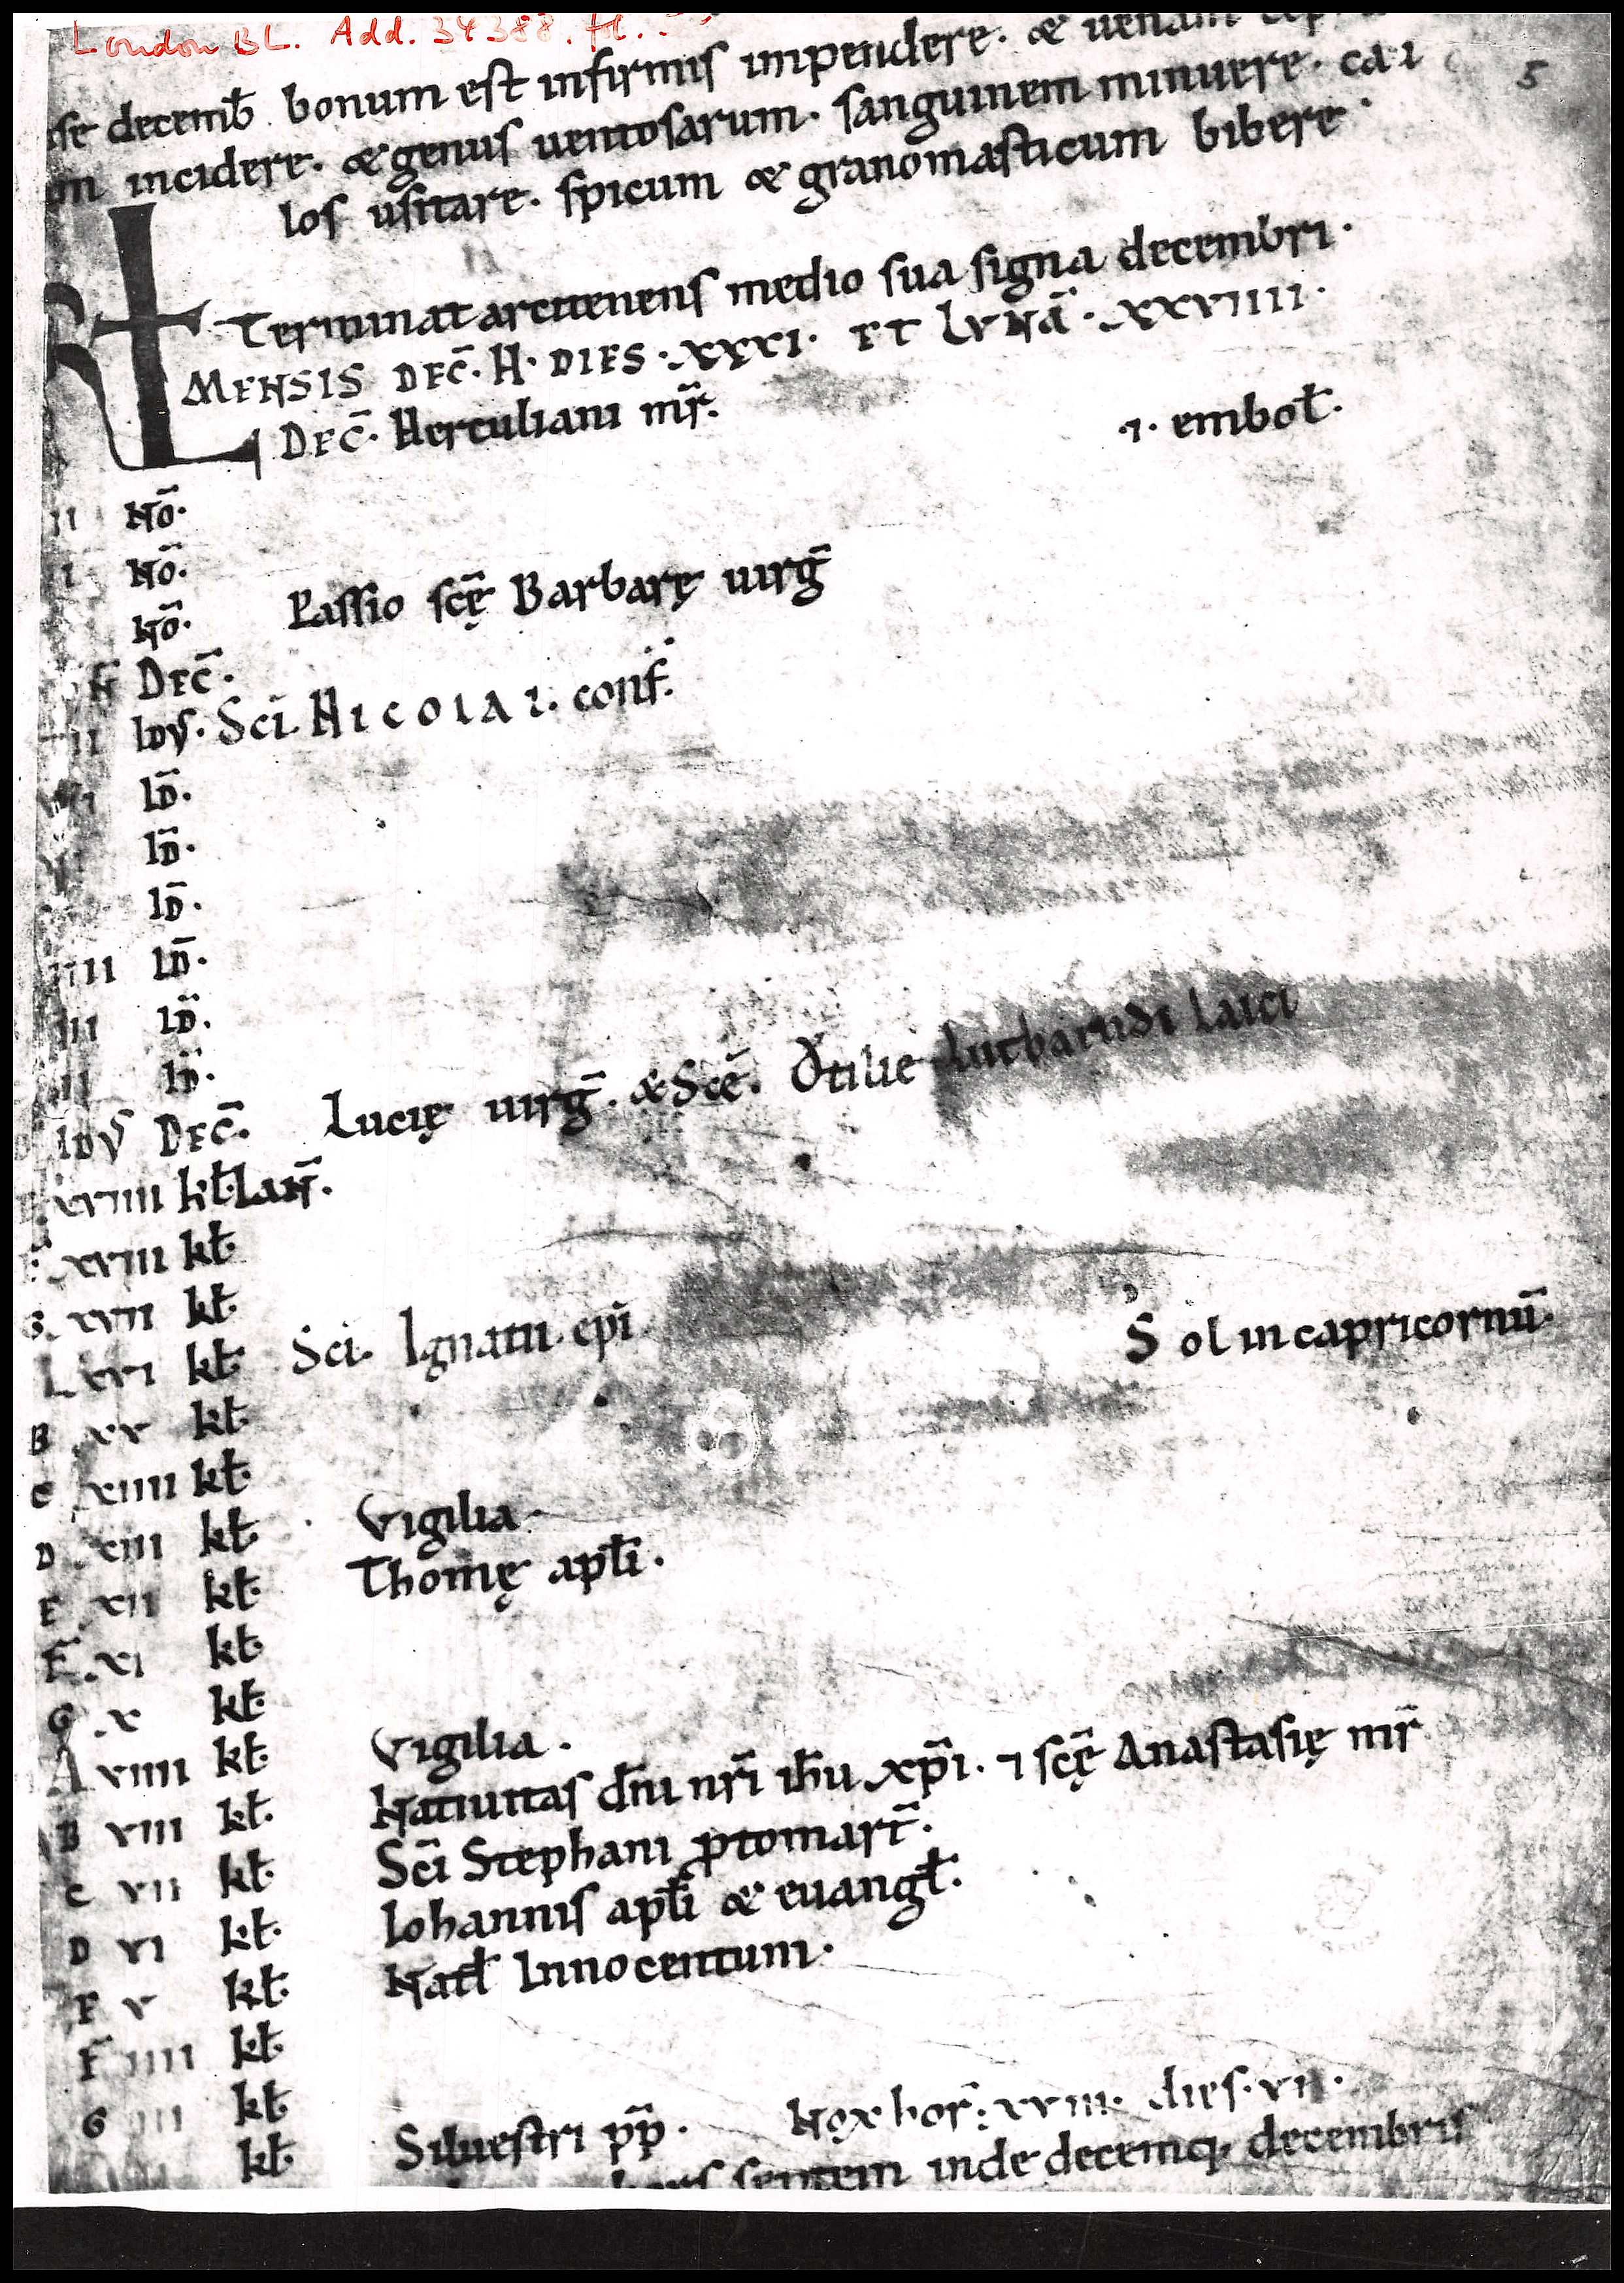 London BL. Add. 34388. fol. 5
se decemƀ bonum est infirmis impendere. & uenam
m incidere. & genus uentosarum. sanguinem minuere. cai 5
los usitare. spicum & granomasticum bibere.
KL Terminat arcitenens medio sua signa decembri.
MENSIS DEC̄. H. DIES. XXXI. ET LVNĀ. XXVIIII.
DEC̄. Herculiani mr̄. .⁊. emboł.
II NO̅.
I NO̅.
NO̅. Passio scę̄ Barbarę uirḡ
N DEC̄.
II IDꝰ. Sc̄i. NICOLAI. conf̄.
VII ID̄.
VI ID̄.
ID̄.
IIII ID̄.
III ID̄.
II ID̄.
IDVS DEC̄. Lucię uirḡ. & Scē. Otilie Lutbarndi laici
XVIIII kł. IAN̄.
F XVIII kł.
G. XVII kł.
XVI kł. Sci. Ignatii epi. Sol in capricornū.
B XV kł.
C XIIII kł.
D XIII kł. Vigilia.
E XII kł. Thomę apłi.
F XI kł.
G X kł.
A VIIII kł. Vigilia.
B VIII kł. Natiuitas dn̄i nr̄i ih̄u xp̄i. ⁊ scę̄ Anastasię mr̄
C VII kł. Sc̄i Stephani ꝓtomart̄.
D VI kł. Iohannis apłi & euangł.
E V kł. Natł Innocentum.
F IIII kł.
G III kł.
kł. Siluestri pp̄. Nox hor̄. XVIII. dies. VI.
septem inde decemq. decembris